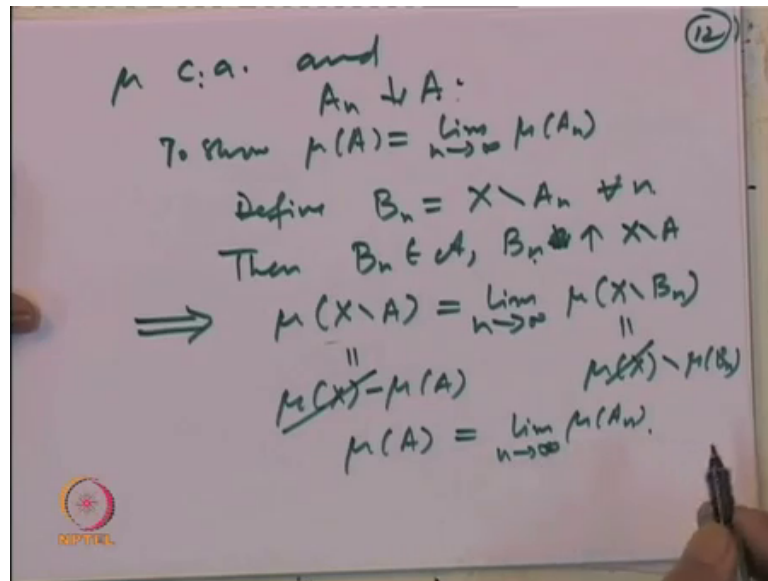 (12)
μ c.a. and
A_n ↓ A:
To show μ(A) = lim_{n→∞} μ(A_n)
Define B_n = X \ A_n ∀ n.
Then B_n ∈ 𝒜, B_n ↑ X \ A
⟹ μ(X \ A) = lim_{n→∞} μ(X \ B_n)
|| ||
μ(X) - μ(A) μ(X) \ μ(B_n)
μ(A) = lim_{n→∞} μ(A_n).
NPTEL